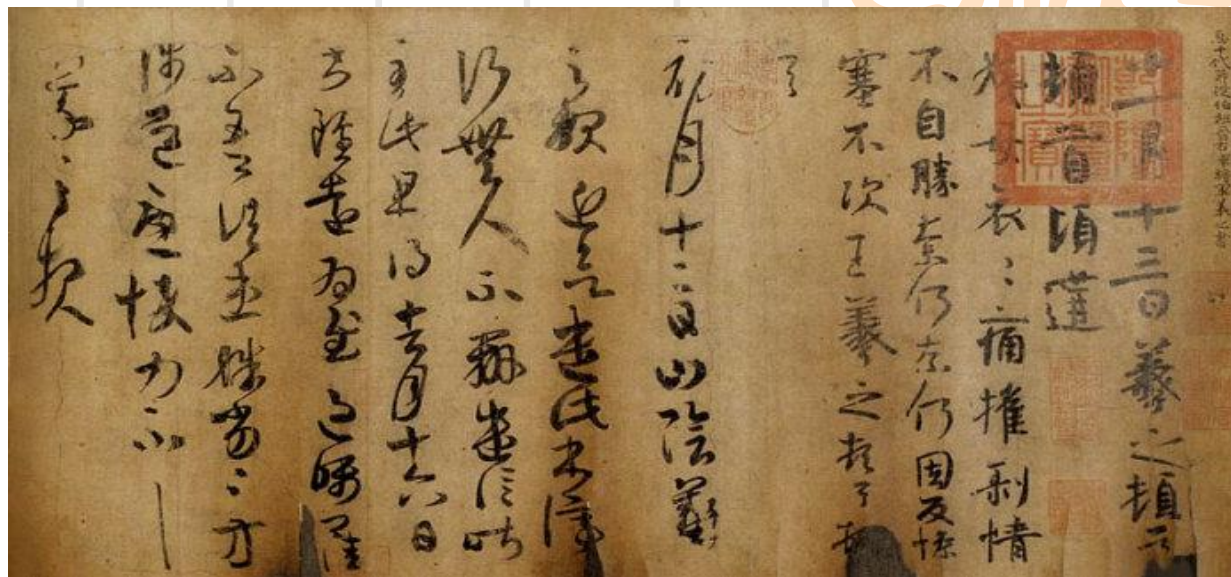 臣十代再從伯祖晉右軍將軍羲之書
十一月十三日羲之頓首
頓首頃遘
姨母哀〻痛摧剝情
不自勝奈何奈何因反慘
塞不次王羲之頓首頓
首
初月十二日山陰羲
之報近欲遣此書停
行無人不辦遣信昨
至此旦得去月十六日
書雖遠為慰過囑卿佳
不吾諸患殊劣〻方
涉道憂悴力不具
羲之報